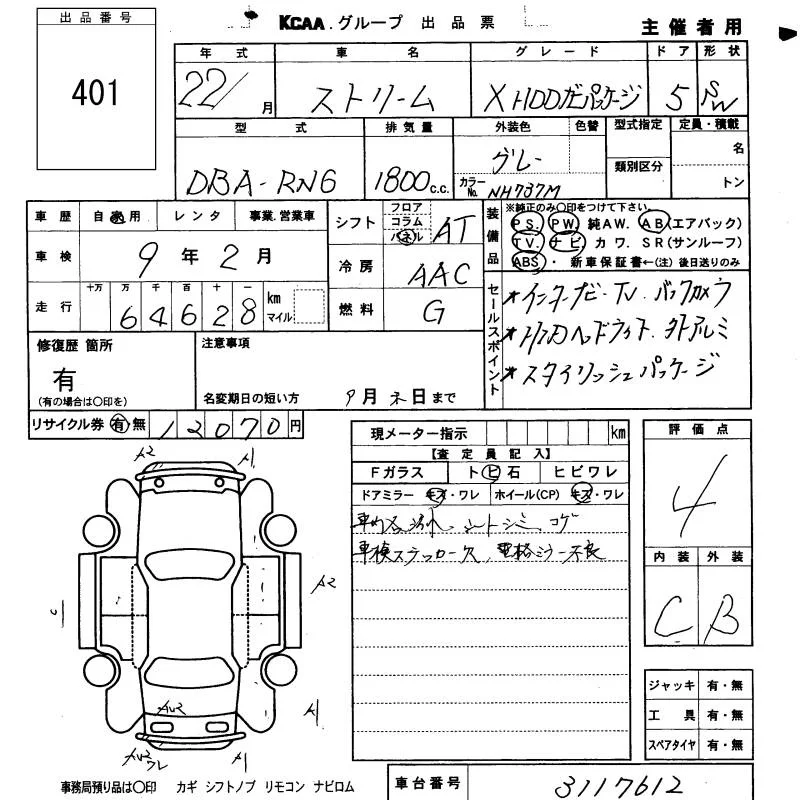 出品番号
401
KCAA.グループ 出品票
主催者用
年式 車名 グレード ドア 形状
22/ 月 ストリーム X HDDナビパッケージ 5 SW
型式 排気量 外装色 色替 型式指定 定員・積載
DBA-RN6 1800 c.c. グレー カラーNo. NH737M 類別区分 名 トン
車歴 自家用 レンタ 事業.営業車
車検 9年2月
走行 十万 万 千 百 十 一
64628 km マイル
シフト フロア コラム パネル AT
冷房 AAC
燃料 G
装備品
※純正のみ〇印をつけて下さい。
PS. PW. 純AW. AB(エアバック)
TV. ナビ カワ. SR(サンルーフ)
ABS・ 新車保証書←(注) 後日送りのみ
セールスポイント
*インターナビ・TV・バックカメラ
*HIDヘッドライト・外アルミ
*スタイリッシュパッケージ
修復歴 箇所
有
(有の場合は〇印を)
注意事項
名変期日の短い方 9月末日まで
リサイクル券 有 無 12070円
現メーター指示 km
【査定員記入】
Fガラス ト ヒ 石 ヒビワレ
ドアミラー キズ・ワレ ホイール(CP) キズ・ワレ
車内 シートシミ コゲ
車検ステッカー欠、電格ミラー不良
評価点
4
内装 外装
C B
ジャッキ 有・無
工具 有・無
スペアタイヤ 有・無
A2 A1
A2
A1
AU2
AU2 ワレ A1
事務局預り品は〇印 カギ シフトノブ リモコン ナビロム
車台番号 3117612